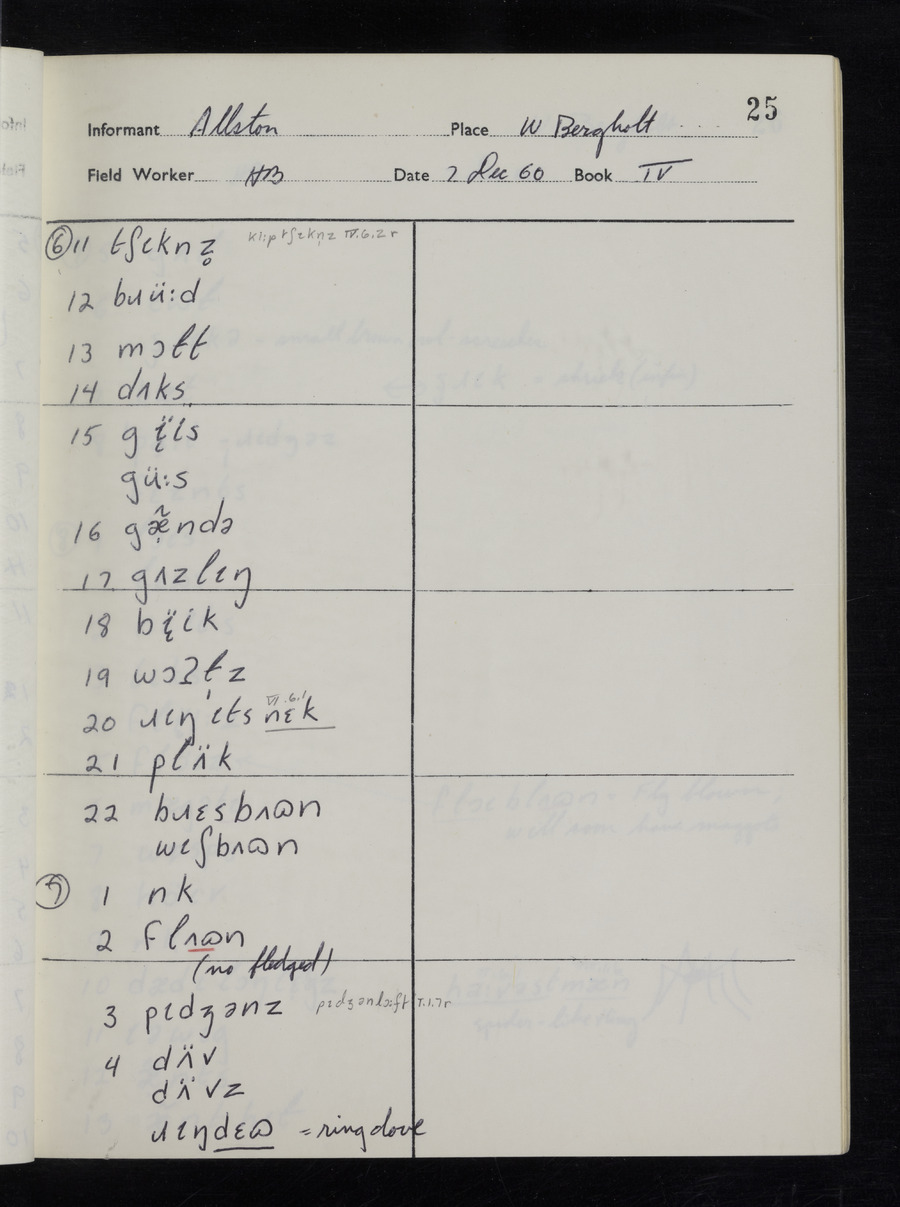 25
Informant Allston Place W Bergholt
Field Worker HB Date 7 Dec 60 Book IV
⑥ 11 tʃɛknz̥ kliːptʃɛkn̩z IV.6.2 r
12 bɹüːd
13 mɔɫt
14 dʌks
15 gɪ̈is
güːs
16 gæ̣̃ndə
17 gʌzlɩŋ
18 bɪ̈ik
19 wɔʔtɫz
20 ɹɩŋ ɩts nɛ̈k VI.6.1
21 plʌ̈k
22 bɹɛsbʌɷn
wɩʃbʌɷn
⑦ 1 nk
2 flʌɷn
(no fledged)
3 pɩdʒənz pɩdʒənlɔːft I.1.7 r
4 dʌ̈v
dʌ̈vz
ɹɩŋdɛɷ = ringdove